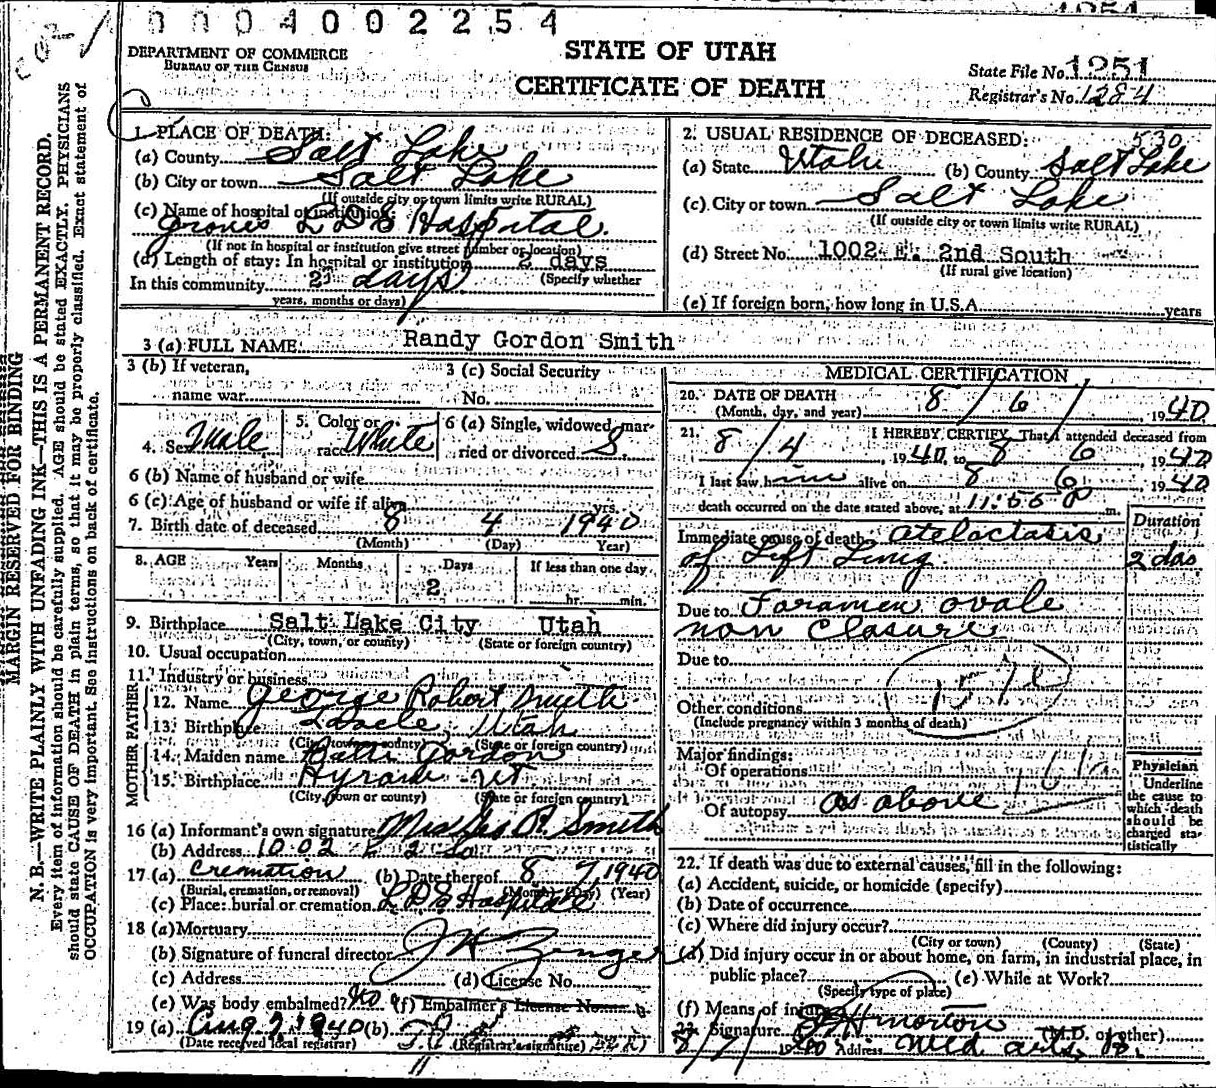 0004002254
DEPARTMENT OF COMMERCE
BUREAU OF THE CENSUS
STATE OF UTAH
CERTIFICATE OF DEATH
State File No. 1251
Registrar's No. 1284
MARGIN RESERVED FOR BINDING
N. B.—WRITE PLAINLY WITH UNFADING INK—THIS IS A PERMANENT RECORD.
Every item of information should be carefully supplied. AGE should be stated EXACTLY. PHYSICIANS
should state CAUSE OF DEATH in plain terms, so that it may be properly classified. Exact statement of
OCCUPATION is very important. See instructions on back of certificate.
1. PLACE OF DEATH:
(a) County Salt Lake
(b) City or town Salt Lake
(If outside city or town limits write RURAL)
(c) Name of hospital or institution:
Groves LDS Hospital.
(If not in hospital or institution give street number or location)
(d) Length of stay: In hospital or institution 2 days
(Specify whether
In this community 2 days
years, months or days)
2. USUAL RESIDENCE OF DECEASED: 530
(a) State Utah (b) County Salt Lake
(c) City or town Salt Lake
(If outside city or town limits write RURAL)
(d) Street No. 1002 E. 2nd South
(If rural give location)
(e) If foreign born, how long in U.S.A. years
3 (a) FULL NAME Randy Gordon Smith
3 (b) If veteran,
name war
3 (c) Social Security
No.
4. Sex male
5. Color or
race White
6 (a) Single, widowed, mar-
ried or divorced S.
6 (b) Name of husband or wife
6 (c) Age of husband or wife if alive yrs.
7. Birth date of deceased 8 4 1940
(Month) (Day) Year)
8. AGE Years Months Days If less than one day
2 hr. min.
9. Birthplace Salt Lake City Utah
(City, town, or county) (State or foreign country)
10. Usual occupation
11. Industry or business
FATHER
12. Name George Robert Smith
13. Birthplace Utah
(City, town or county) (State or foreign country)
MOTHER
14. Maiden name Gordon
15. Birthplace Hyrum Ut
(City, town or county) (State or foreign country)
16 (a) Informant's own signature R. Smith
(b) Address 1002 E 2 So
17 (a) Cremation (b) Date thereof 8 7 1940
(Burial, cremation, or removal) (Month) (Day) (Year)
(c) Place: burial or cremation LDS Hospital
18 (a) Mortuary
(b) Signature of funeral director
(c) Address (d) License No.
(e) Was body embalmed? No (f) Embalmer's License No.
19 (a) Aug 7 1940 (b)
(Date received local registrar) (Registrar's signature)
MEDICAL CERTIFICATION
20. DATE OF DEATH
(Month, day, and year) 8 / 6 / 1940
21. I HEREBY CERTIFY, That I attended deceased from
8 / 4, 1940, to 8 6, 1940
I last saw him alive on 8 6, 1940
death occurred on the date stated above, at 11:55 P m.
Duration
Immediate cause of death atelactasis
of Left Lung 2 das
Due to Foramen ovale
non closure
Due to
Other conditions
(Include pregnancy within 3 months of death)
Major findings:
Of operations
Of autopsy as above
Physician
Underline
the cause to
which death
should be
charged sta-
tistically
22. If death was due to external causes, fill in the following:
(a) Accident, suicide, or homicide (specify)
(b) Date of occurrence
(c) Where did injury occur?
(City or town) (County) (State)
(d) Did injury occur in or about home, on farm, in industrial place, in
public place? (e) While at Work?
(Specify type of place)
(f) Means of injury
23. Signature Morton (M.D. or other)
8/7/ 1940 Address Med arts B.